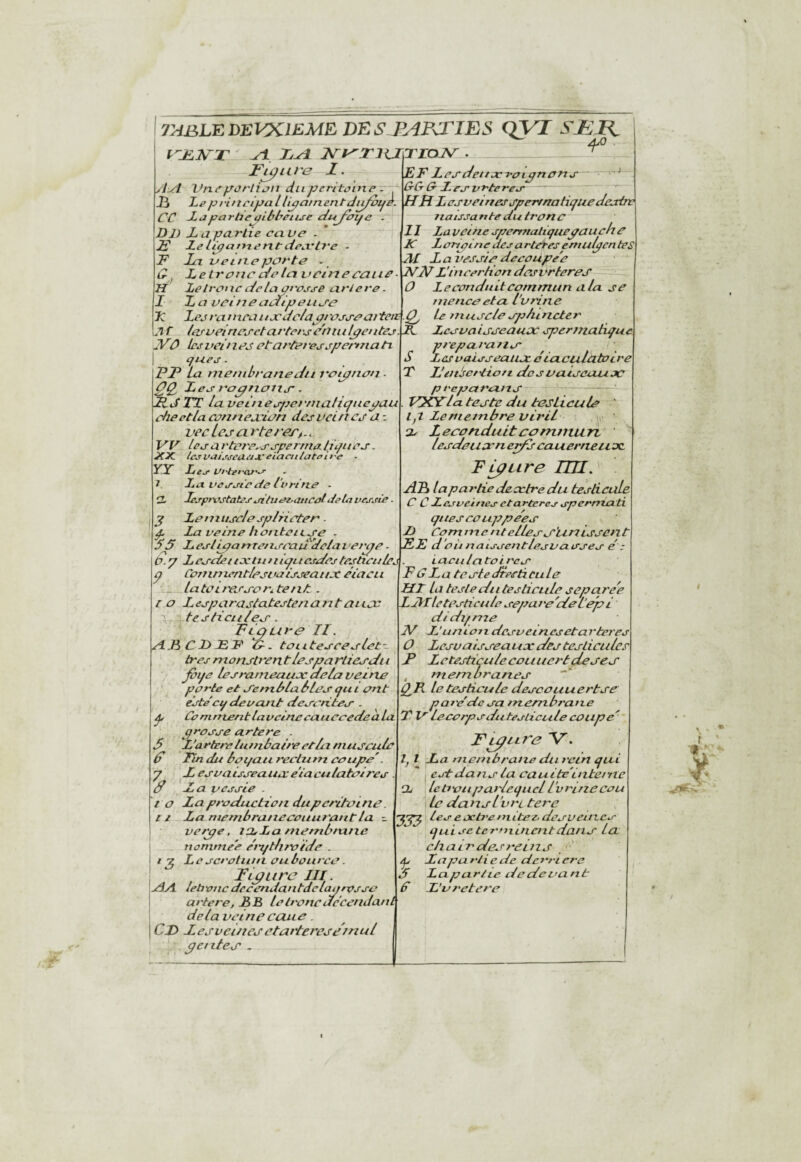 TABLE DEVXIEME DES PARTIES QVI SER
VENT A LA NVTRITION.
40
Figure I.
AA Vne portion du peritoine.
B Le principal ligament du foye.
CC La partie gibbeuse du foye.
DD La partie cave.
E Le ligament dextre.
F La veine porte.
G Le tronc de la veine caue.
H Le tronc de la grosse artere.
I La veine adipeuse
K Les rameaux de la grosse artere
M les veines et arteres émulgentes.
NO les veines et arteres spermati
ques.
PP La membrane du roignon.
QQ Les rognons.
RSTT la veine spermatique gau
che et la connexion des veines a-
vec les arteres.
VV les arteres spermatiques.
XX les vaisseaux eiaculatoire
YY Les Vrteres
1 La vessie de l'vrine.
2 Les prostates situez au col de la vessie.
3 Le muscle sphicter.
4 La veine honteuse.
55 Les ligamens cau de la verge.
6.7 Les deux tuniques des testicules
9 Comment les vaisseaux éiacu
latoires sortent.
10 Les parastates tenant aux
testicules.
Figure II.
ABCDEF G. toutes ces let-
tres monstrent les parties du
foye les rameaux de la veine
porte et semblables qui ont
esté cy devant descrites.
4 Comment la veine caue cede à la
grosse artere.
5 L'artere lumbaire et la muscule
6 Fin du boyau rectum coupé.
7 Les vaisseaux eiaculatoires.
8 La vessie.
10 La production du peritoine.
11 La membrane couurant la
verge, 12 La membrane
nommeé erythroïde.
13 Le scrotum ou bource.
Figure III.
AA le tronc decendant de la grosse
artere, BB le tronc décendant
de la veine caue.
CD Les veines et arteres émul
gentes.
EF Les deux roignons
GG G Les vrteres
HH Les veines spermatique dextre
naissante du tronc
II La veine spermatique gauche
K L'origine des arteres émulgentes
M La vessie decoupeé
NN L'incertion des vrteres
O Le conduit commun a la se
mence et a l'urine
Q Le muscle sphincter
R Les vaisseaux spermatique
preparans
S Les vaisseaux éiaculatoire
T L'insertion des vaiseaux
preparans
VXY la teste du testicule
1,1 Le membre viril
2 Le conduit commun
les deux nerfs cauerneux
Figure IIII.
AB la partie dextre du testicule
CC Les veines et arteres spermati
ques couppées
D Comment elles s'unissent
EE d'où naissent les vasses é:
iaculatoires
FG La teste du testicule
HI la teste du testicule separeé
LM le testicule separé de l'epi
didyme
N L'union des veines et arteres
O Les vaisseaux des testicules
P Le testicule couuert de ses
membranes
QR le testicule descouuert se
paré de sa membrane
TV le corps du testicule coupé
Figure V.
1,1 La membrane du rein qui
est dans la cauité interne
2 le trou par lequel l'vrine cou
le dans l'vretere
333 les extremitez des veines
qui se terminent dans la
chair des reins
4 La partie de derriere
5 La partie de devant
6 L'vretere